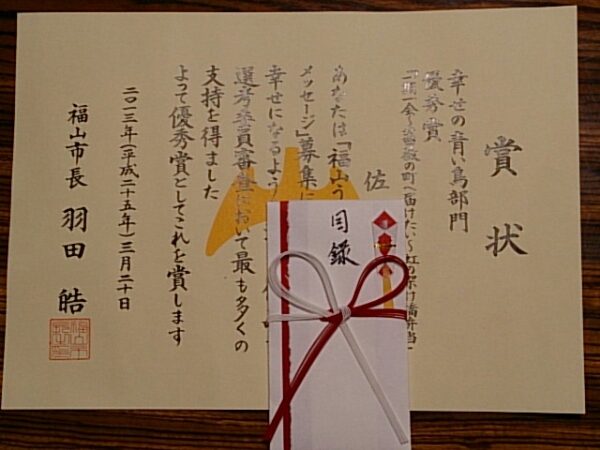 賞状
幸せの青い鳥部門
優秀賞
「一期一会～薔薇の町へ届けたい～虹の架け橋弁当」
佐
あなたは「福山う
メッセージ」募集に
幸せになるよう
選考委員審査において最も多くの
支持を得ました
よって優秀賞としてこれを賞します
二〇一三年(平成二十五年)三月二十日
福山市長 羽田 皓
目録